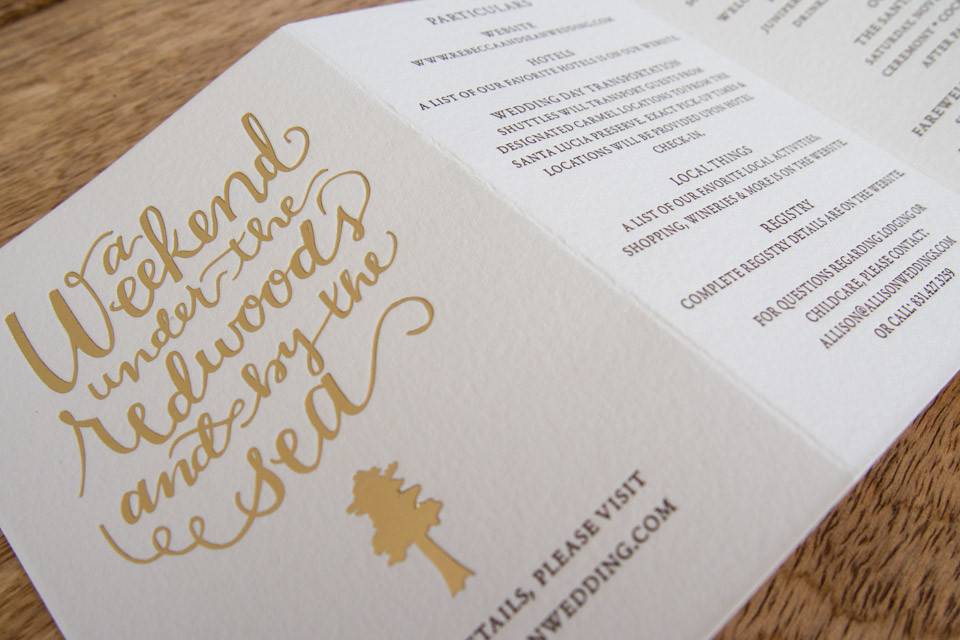 a
Weekend
under the
redwoods
and by the
sea
DETAILS, PLEASE VISIT
NWEDDING.COM
PARTICULARS
WEBSITE
WWW.REBECCAANDSEANWEDDING.COM
HOTELS
A LIST OF OUR FAVORITE HOTELS IS ON OUR WEBSITE
WEDDING DAY TRANSPORTATION
SHUTTLES WILL TRANSPORT GUESTS FROM
DESIGNATED CARMEL LOCATIONS TO/FROM THE
SANTA LUCIA PRESERVE. EXACT PICK-UP TIMES &
LOCATIONS WILL BE PROVIDED UPON HOTEL
CHECK-IN.
LOCAL THINGS
A LIST OF OUR FAVORITE LOCAL ACTIVITIES,
SHOPPING, WINERIES & MORE IS ON THE WEBSITE
REGISTRY
COMPLETE REGISTRY DETAILS ARE ON THE WEBSITE
FOR QUESTIONS REGARDING LODGING OR
CHILDCARE, PLEASE CONTACT:
ALLISON@ALLISONWEDDINGS.COM
OR CALL 831.427.3259
WELC
JUNIPER
DRINKS
OU
THE SANTA
SATURDAY, NOV
CEREMONY * COC
AFTER PA
FAREWEL